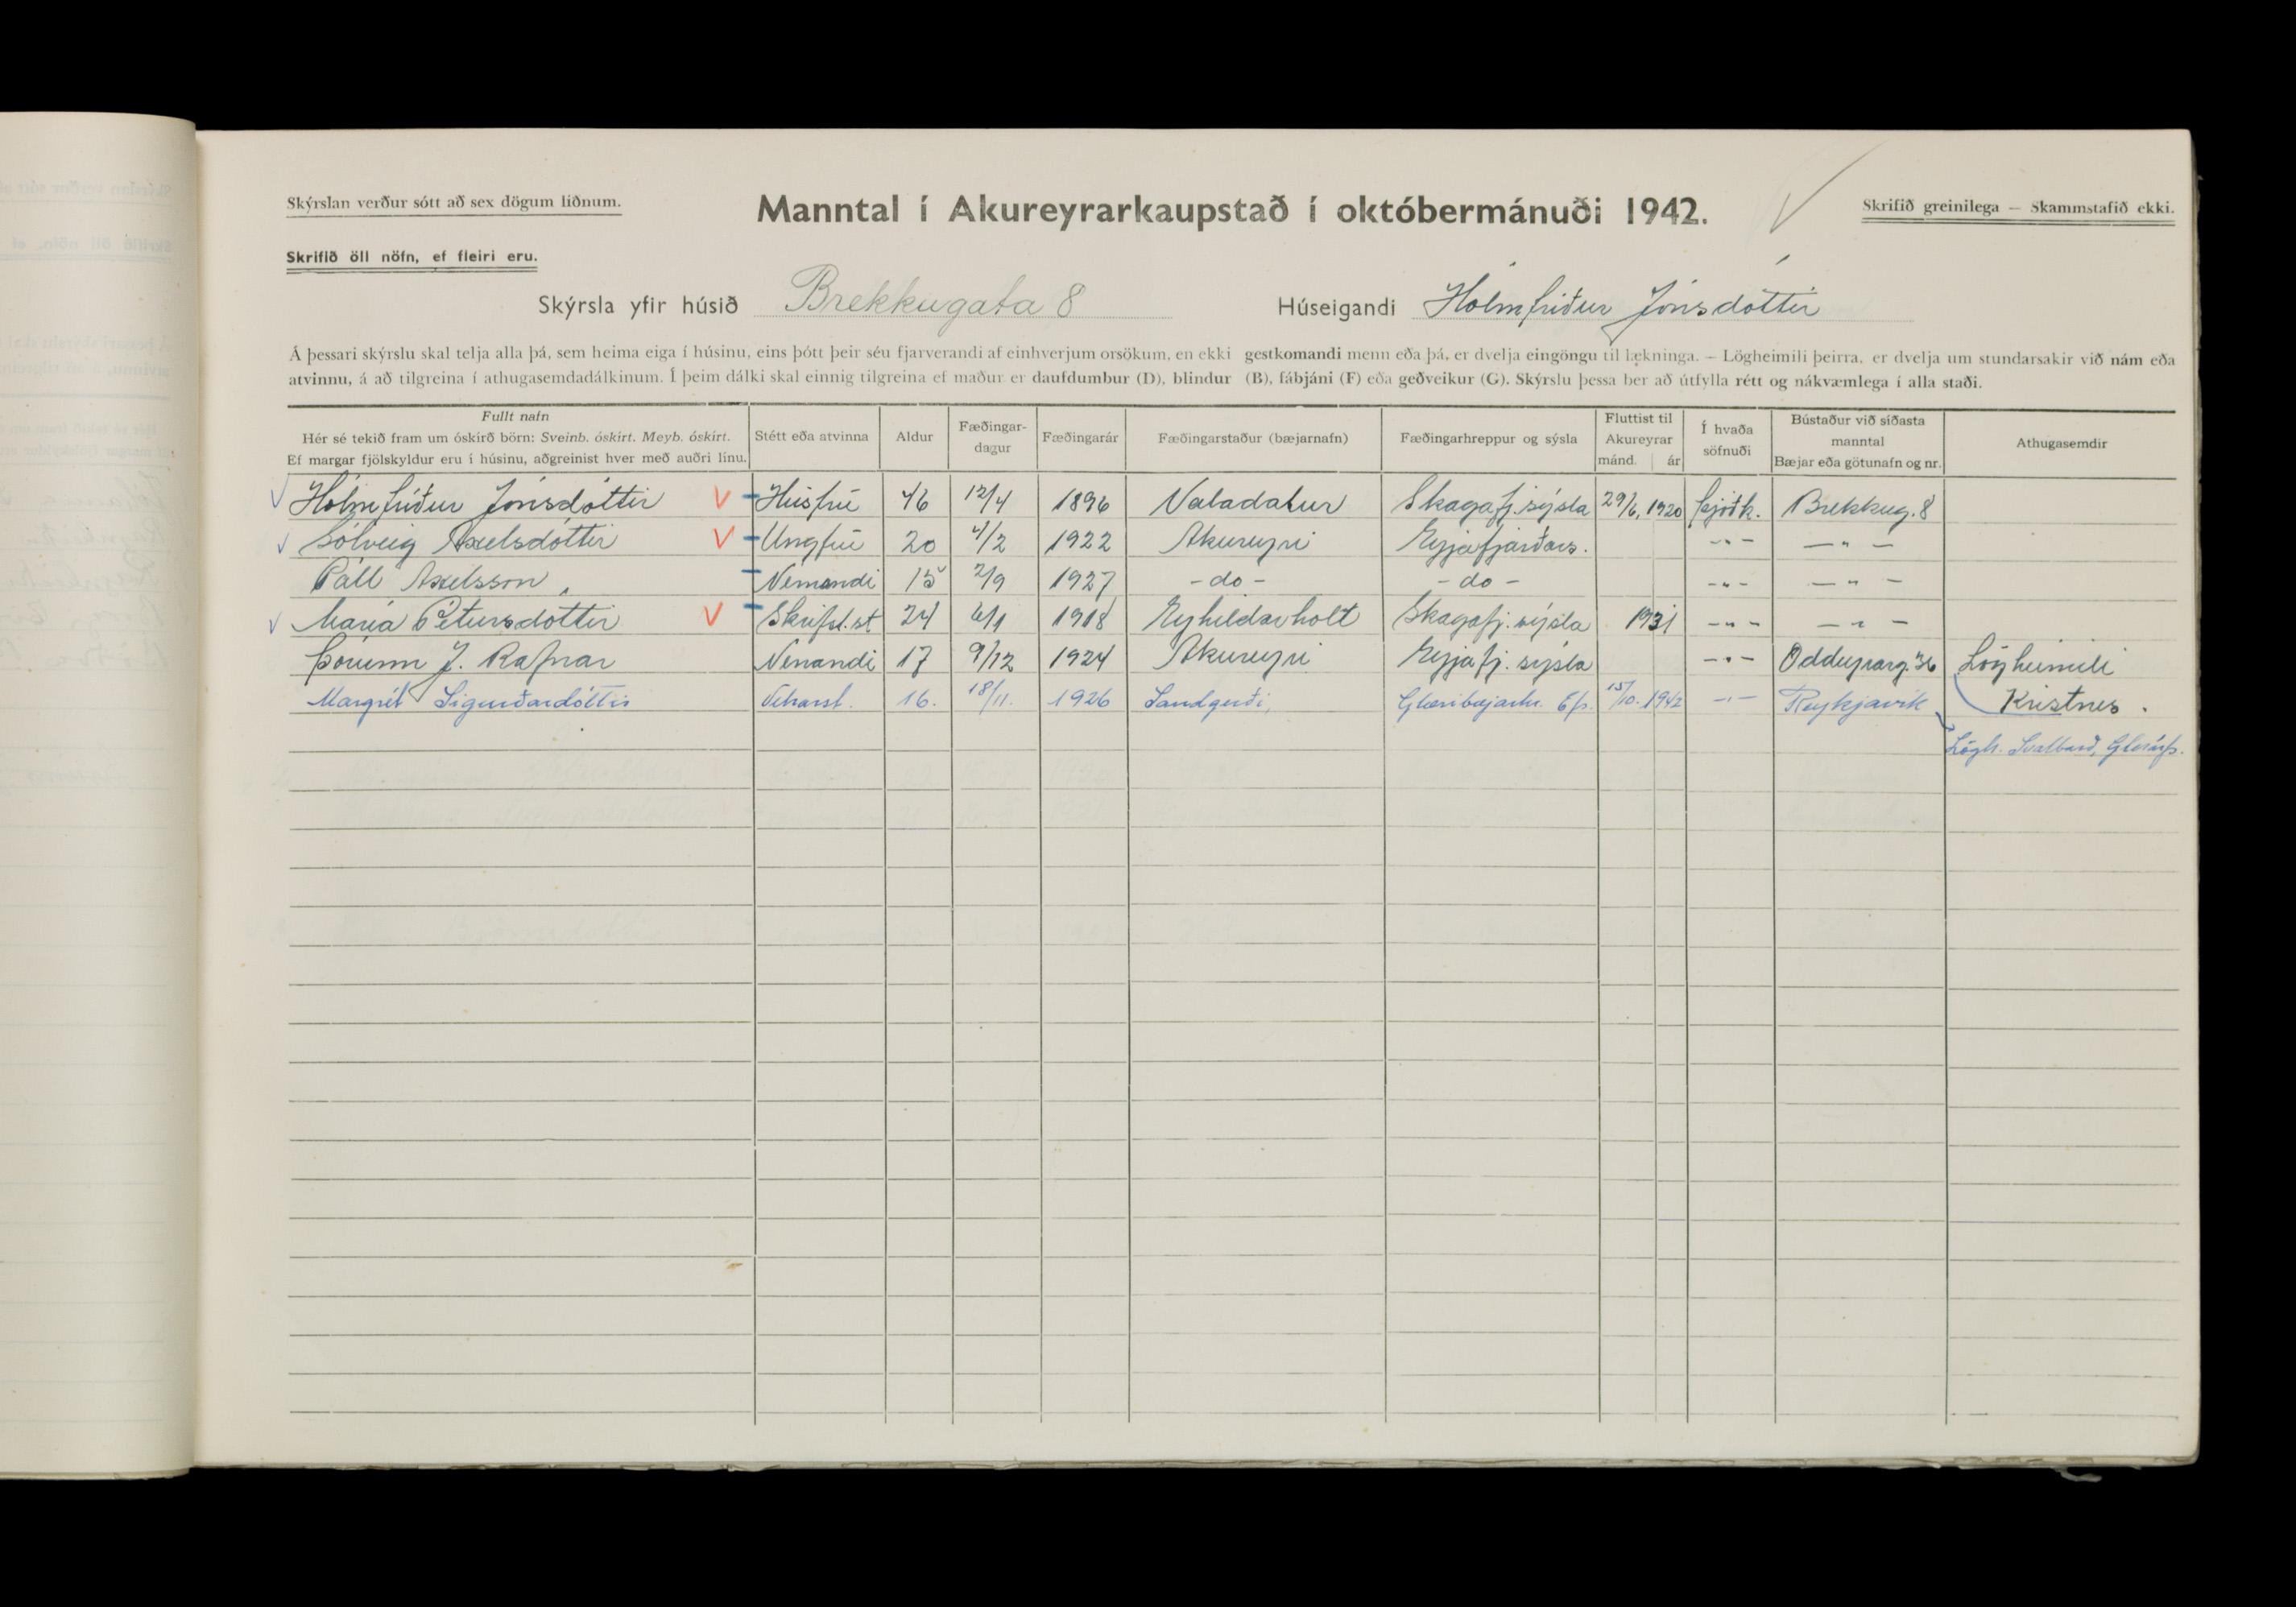 Skýrslan verður sótt að sex dögum liðnum.
Manntal í Akureyrarkaupstað í októbermánuði 1942.
Skrifið greinilega — Skammstafið ekki.
Skrifið öll nöfn, ef fleiri eru.
Skýrsla yfir húsið Brekkugata 8 Húseigandi Hólmfríður Jónsdóttir
Á þessari skýrslu skal telja alla þá, sem heima eiga í húsinu, eins þótt þeir séu fjarverandi af einhverjum orsökum, en ekki gestkomandi menn eða þá, er dvelja eingöngu til lækninga. — Lögheimili þeirra, er dvelja um stundarsakir við nám eða
atvinnu, á að tilgreina í athugasemdadálkinum. Í þeim dálki skal einnig tilgreina ef maður er daufdumbur (D), blindur (B), fábjáni (F) eða geðveikur (G). Skýrslu þessa ber að útfylla rétt og nákvæmlega í alla staði.
Fullt nafn
Hér sé tekið fram um óskírð börn: Sveinb. óskírt. Meyb. óskírt.
Ef margar fjölskyldur eru í húsinu, aðgreinist hver með auðri línu.
Stétt eða atvinna
Aldur
Fæðingar-
dagur
Fæðingarár
Fæðingarstaður (bæjarnafn)
Fæðingarhreppur og sýsla
Fluttist til
Akureyrar
mánd. ár
Í hvaða
söfnuði
Bústaður við síðasta
manntal
Bæjar eða götunafn og nr.
Athugasemdir
Hólmfríður Jónsdóttir V Húsfrú 46 12/4 1896 Valadalur Skagafj.sýsla 29/6, 1920 Þjóðk. Brekkug. 8
Sólveig Axelsdóttir V Ungfrú 20 4/2 1922 Akureyri Eyjafjarðars. -"- -"-
Páll Axelsson Nemandi 15 2/9 1927 -do- -do- -"- -"-
María Pétursdóttir V Skrifst.st 24 6/1 1918 Eyhildarholt Skagafj.sýsla 1931 -"- -"-
Þórunn J. Rafnar Nemandi 17 9/12 1924 Akureyri Eyjafj. sýsla -"- Oddeyrarg. 36 Lögheimili
Margrét Sigurðardóttir 16. 18/11. 1926 Sandgerði, Glæsibæjarhr. Ef. 15/10. 1942 -"- Reykjavík Kristnes.
Lögh. Svalbarð, Glerárþ.